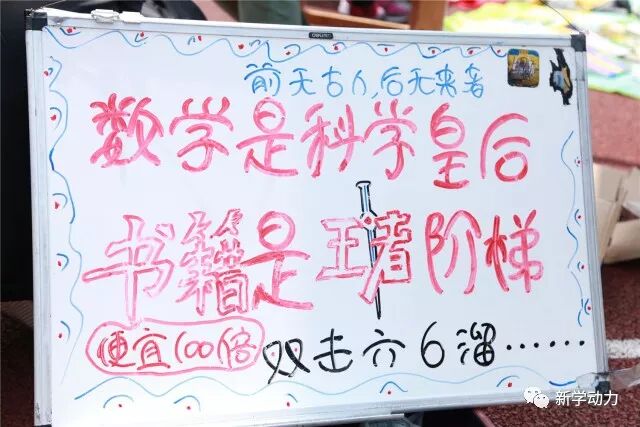 前无古人,后无来者
数学是科学皇后
书籍是王者阶梯
便宜100倍
双击六6溜……
新学动力